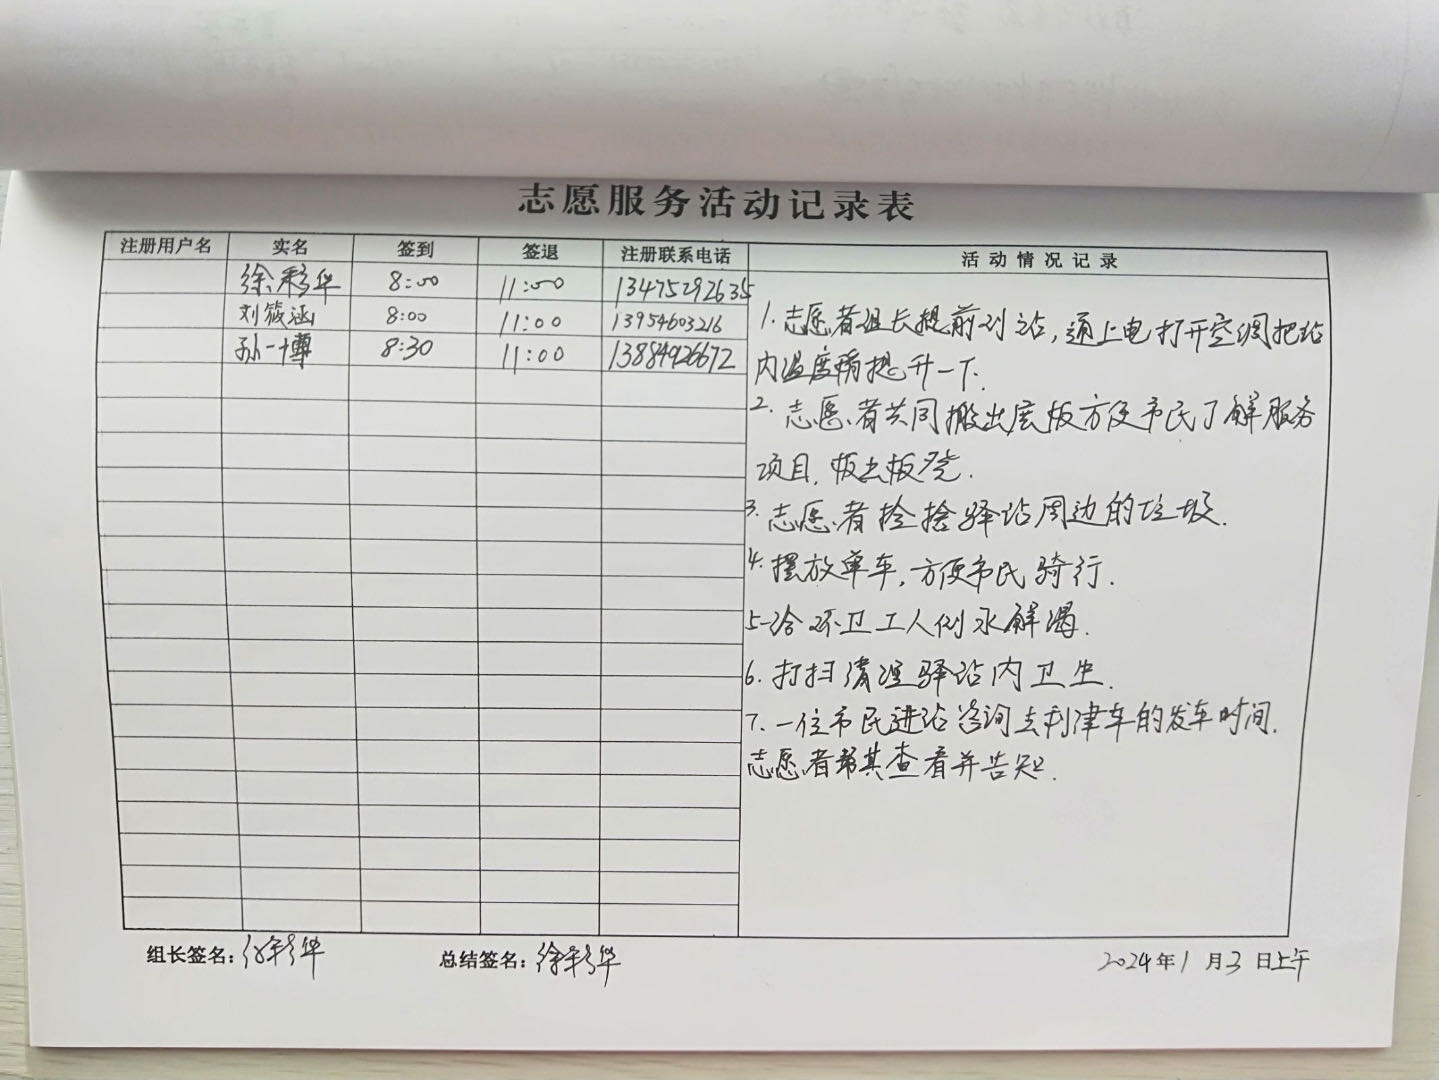 志愿服务活动记录表
注册用户名 实名 签到 签退 注册联系电话 活动情况记录
徐彩华 8:00 11:00 13475292635
刘筱涵 8:00 11:00 13954603216
孙一博 8:30 11:00 13884926672
1. 志愿者组长提前到站,通上电打开空调把站
内温度稍提升一下.
2. 志愿者共同搬出展板方便市民了解服务
项目,板出板凳.
3. 志愿者捡拾驿站周边的垃圾.
4. 摆放单车,方便市民骑行.
5. 给环卫工人倒水解渴.
6. 打扫清理驿站内卫生.
7. 一位市民进站咨询去利津车的发车时间.
志愿者帮其查看并告知.
组长签名:徐彩华 总结签名:徐彩华 2024年1月3日上午